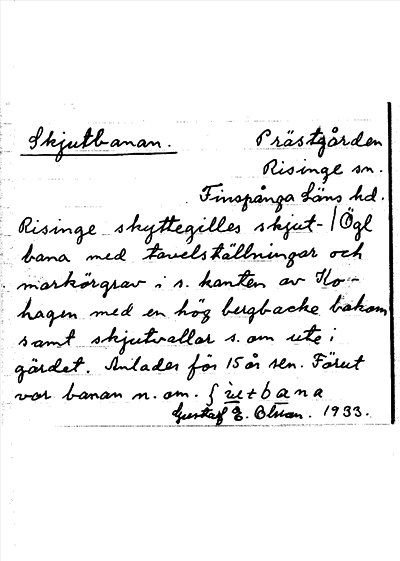 Skjutbanan. Prästgården
Risinge sn.
Finspånga läns hd.
Risinge skyttegilles skjut-/Ögl
bana med tavelställningar och
markörgrav i s. kanten av Ko-
hagen med en hög bergbacke bakom
samt skjutvallar s. om ute i
gärdet. Anlades för 15 år sen. Förut
var banan n. om.
Gustaf E. 1933.